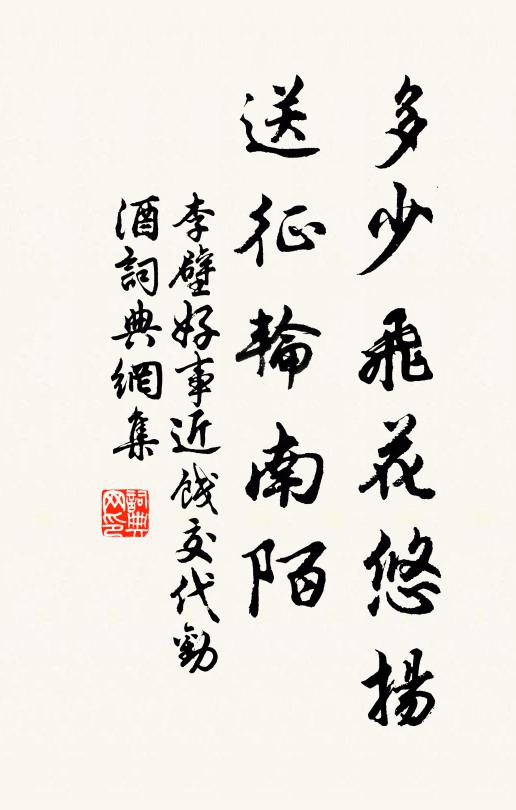 多少飛花悠揚
送征輪南陌
李壁好事近餞交代勸
酒詞典網集
詞典網印